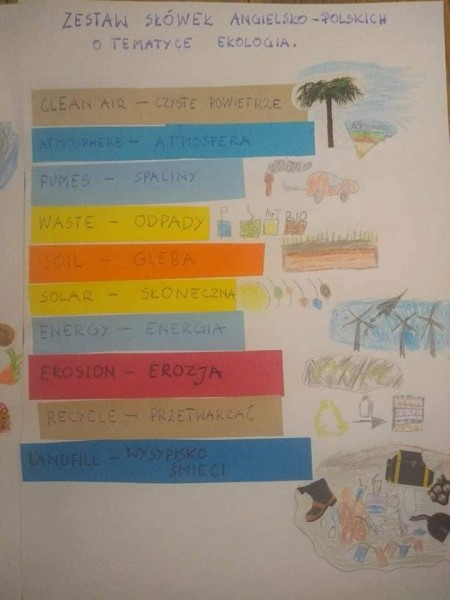 ZESTAW SŁÓWEK ANGIELSKO-POLSKICH
O TEMATYCE EKOLOGIA.
CLEAN AIR – CZYSTE POWIETRZE
ATMOSPHERE – ATMOSFERA
FUMES – SPALINY
WASTE – ODPADY
BIO
SOIL – GLEBA
SOLAR – SŁONECZNA
ENERGY – ENERGIA
EROSION – EROZJA
RECYCLE – PRZETWARZAĆ
LANDFILL – WYSYPISKO
ŚMIECI